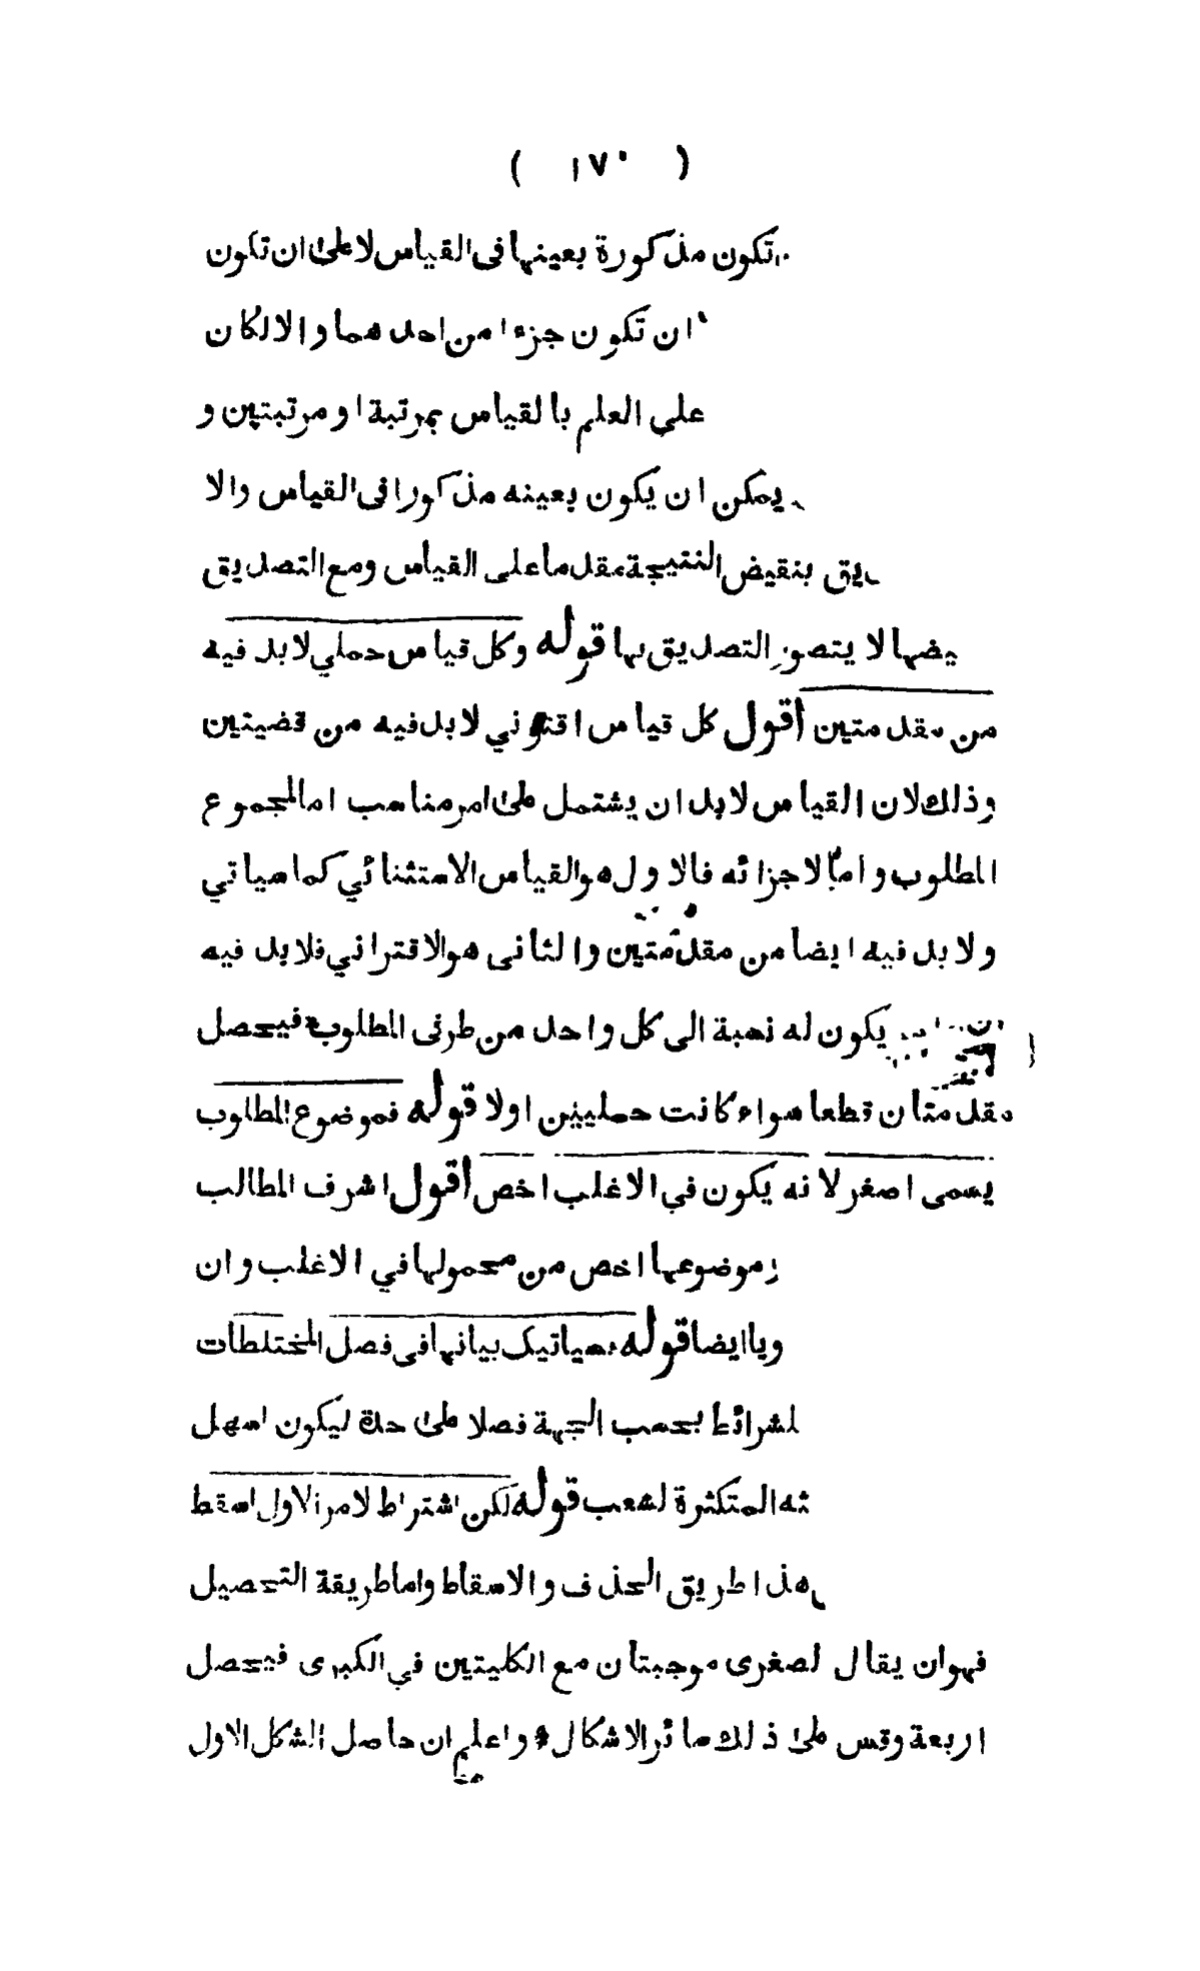 ( ١٧٠ )
تكون مذكورة بعينها فى القياس لا على ان تكون
ان تكون جزءا من احدهما والا لكان
على العلم بالقياس بمرتبة او مرتبتين و
يمكن ان يكون بعينه مذكورا فى القياس والا
يق بنقيض النتيجة مقدما على القياس ومع التصديق
يضها لا يتصور التصديق بها قوله وكل قياس حملي لا بد فيه
من مقدمتين اقول كل قياس اقتراني لا بد فيه من قضيتين
وذلك لان القياس لا بد ان يشتمل على امر مناسب اما لمجموع
المطلوب واما لاجزائه فالاول هو القياس الاستثنائي كما سياتي
ولا بد فيه ايضا من مقدمتين والثانى هو الاقتراني فلا بد فيه
يكون له نسبة الى كل واحد من طرفى المطلوب فيحصل
مقدمتان قطعا سواء كانت حمليتين اولا قوله فموضوع المطلوب
يسمى اصغر لانه يكون في الاغلب اخص اقول اشرف المطالب
وموضوعها اخص من محمولها في الاغلب وان
ويا ايضا قوله سياتيك بيانها فى فصل المختلطات
لشرائط بحسب الجهة فصلا على حدة ليكون اسهل
ثه المتكثرة لشعب قوله لكن اشتراط لامر الاول اسقط
هذا طريق الحذف والاسقاط واما طريقة التحصيل
فهوان يقال لصغرى موجبتان مع الكليتين في الكبرى فيحصل
اربعة وقس على ذلك سائر الاشكال واعلم ان حاصل الشكل الاول